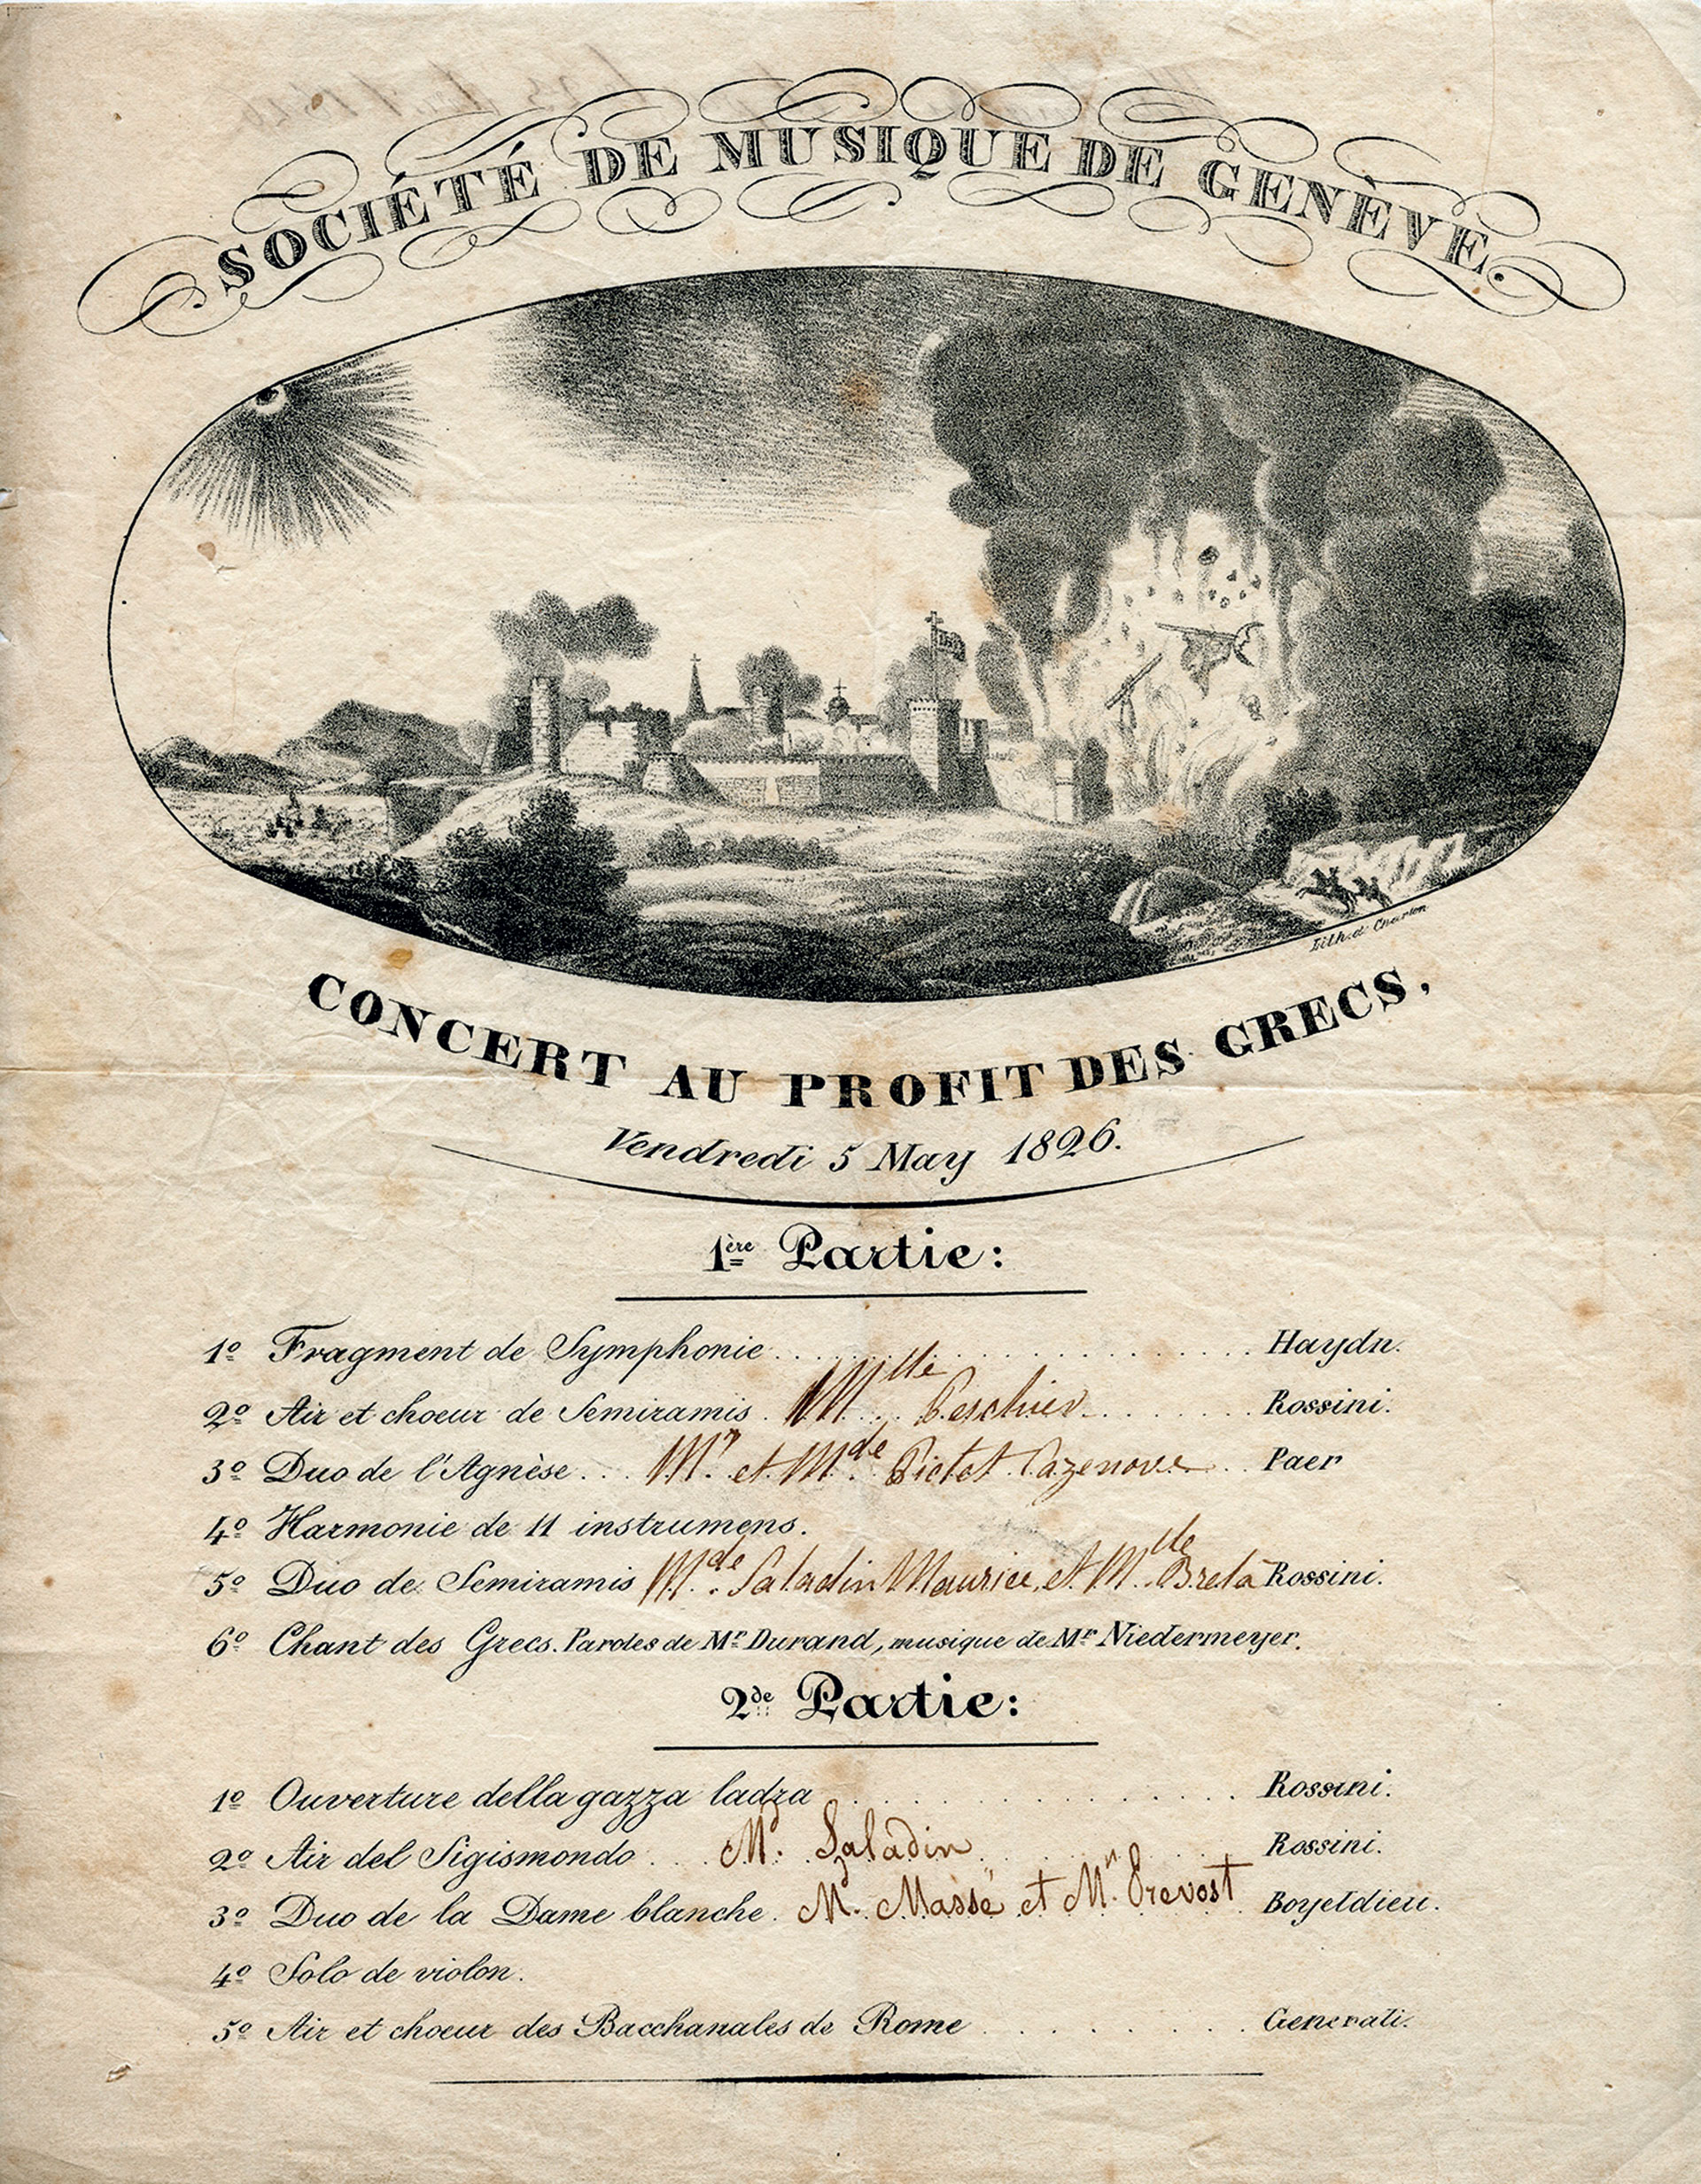 SOCIÉTÉ DE MUSIQUE DE GENÈVE.
Lith. de Charton
CONCERT AU PROFIT DES GRECS,
Vendredi 5 May 1826.
1ère Partie:
1º Fragment de Symphonie . . . . . . . . . . . . . . . . Haydn.
2º Air et choeur de Semiramis . Mlle Peschier . . . . . . Rossini.
3º Duo de l'Agnèse . . . Mr et Mde Pictet Cazenove . . Paer
4º Harmonie de 11 instrumens.
5º Duo de Semiramis Mde Saladin Maurice, et Mlle Rossini.
6º Chant des Grecs. Paroles de Mr Durand, musique de Mr Niedermeyer.
2de Partie:
1º Ouverture della gazza ladra . . . . . . . . . . . . . Rossini.
2º Air del Sigismondo . . . Md. Saladin . . . . . . Rossini.
3º Duo de la Dame blanche . Massé et Prevost . Boyeldieu.
4º Solo de violon.
5º Air et choeur des Bacchanales de Rome . . . . . . . Generali.